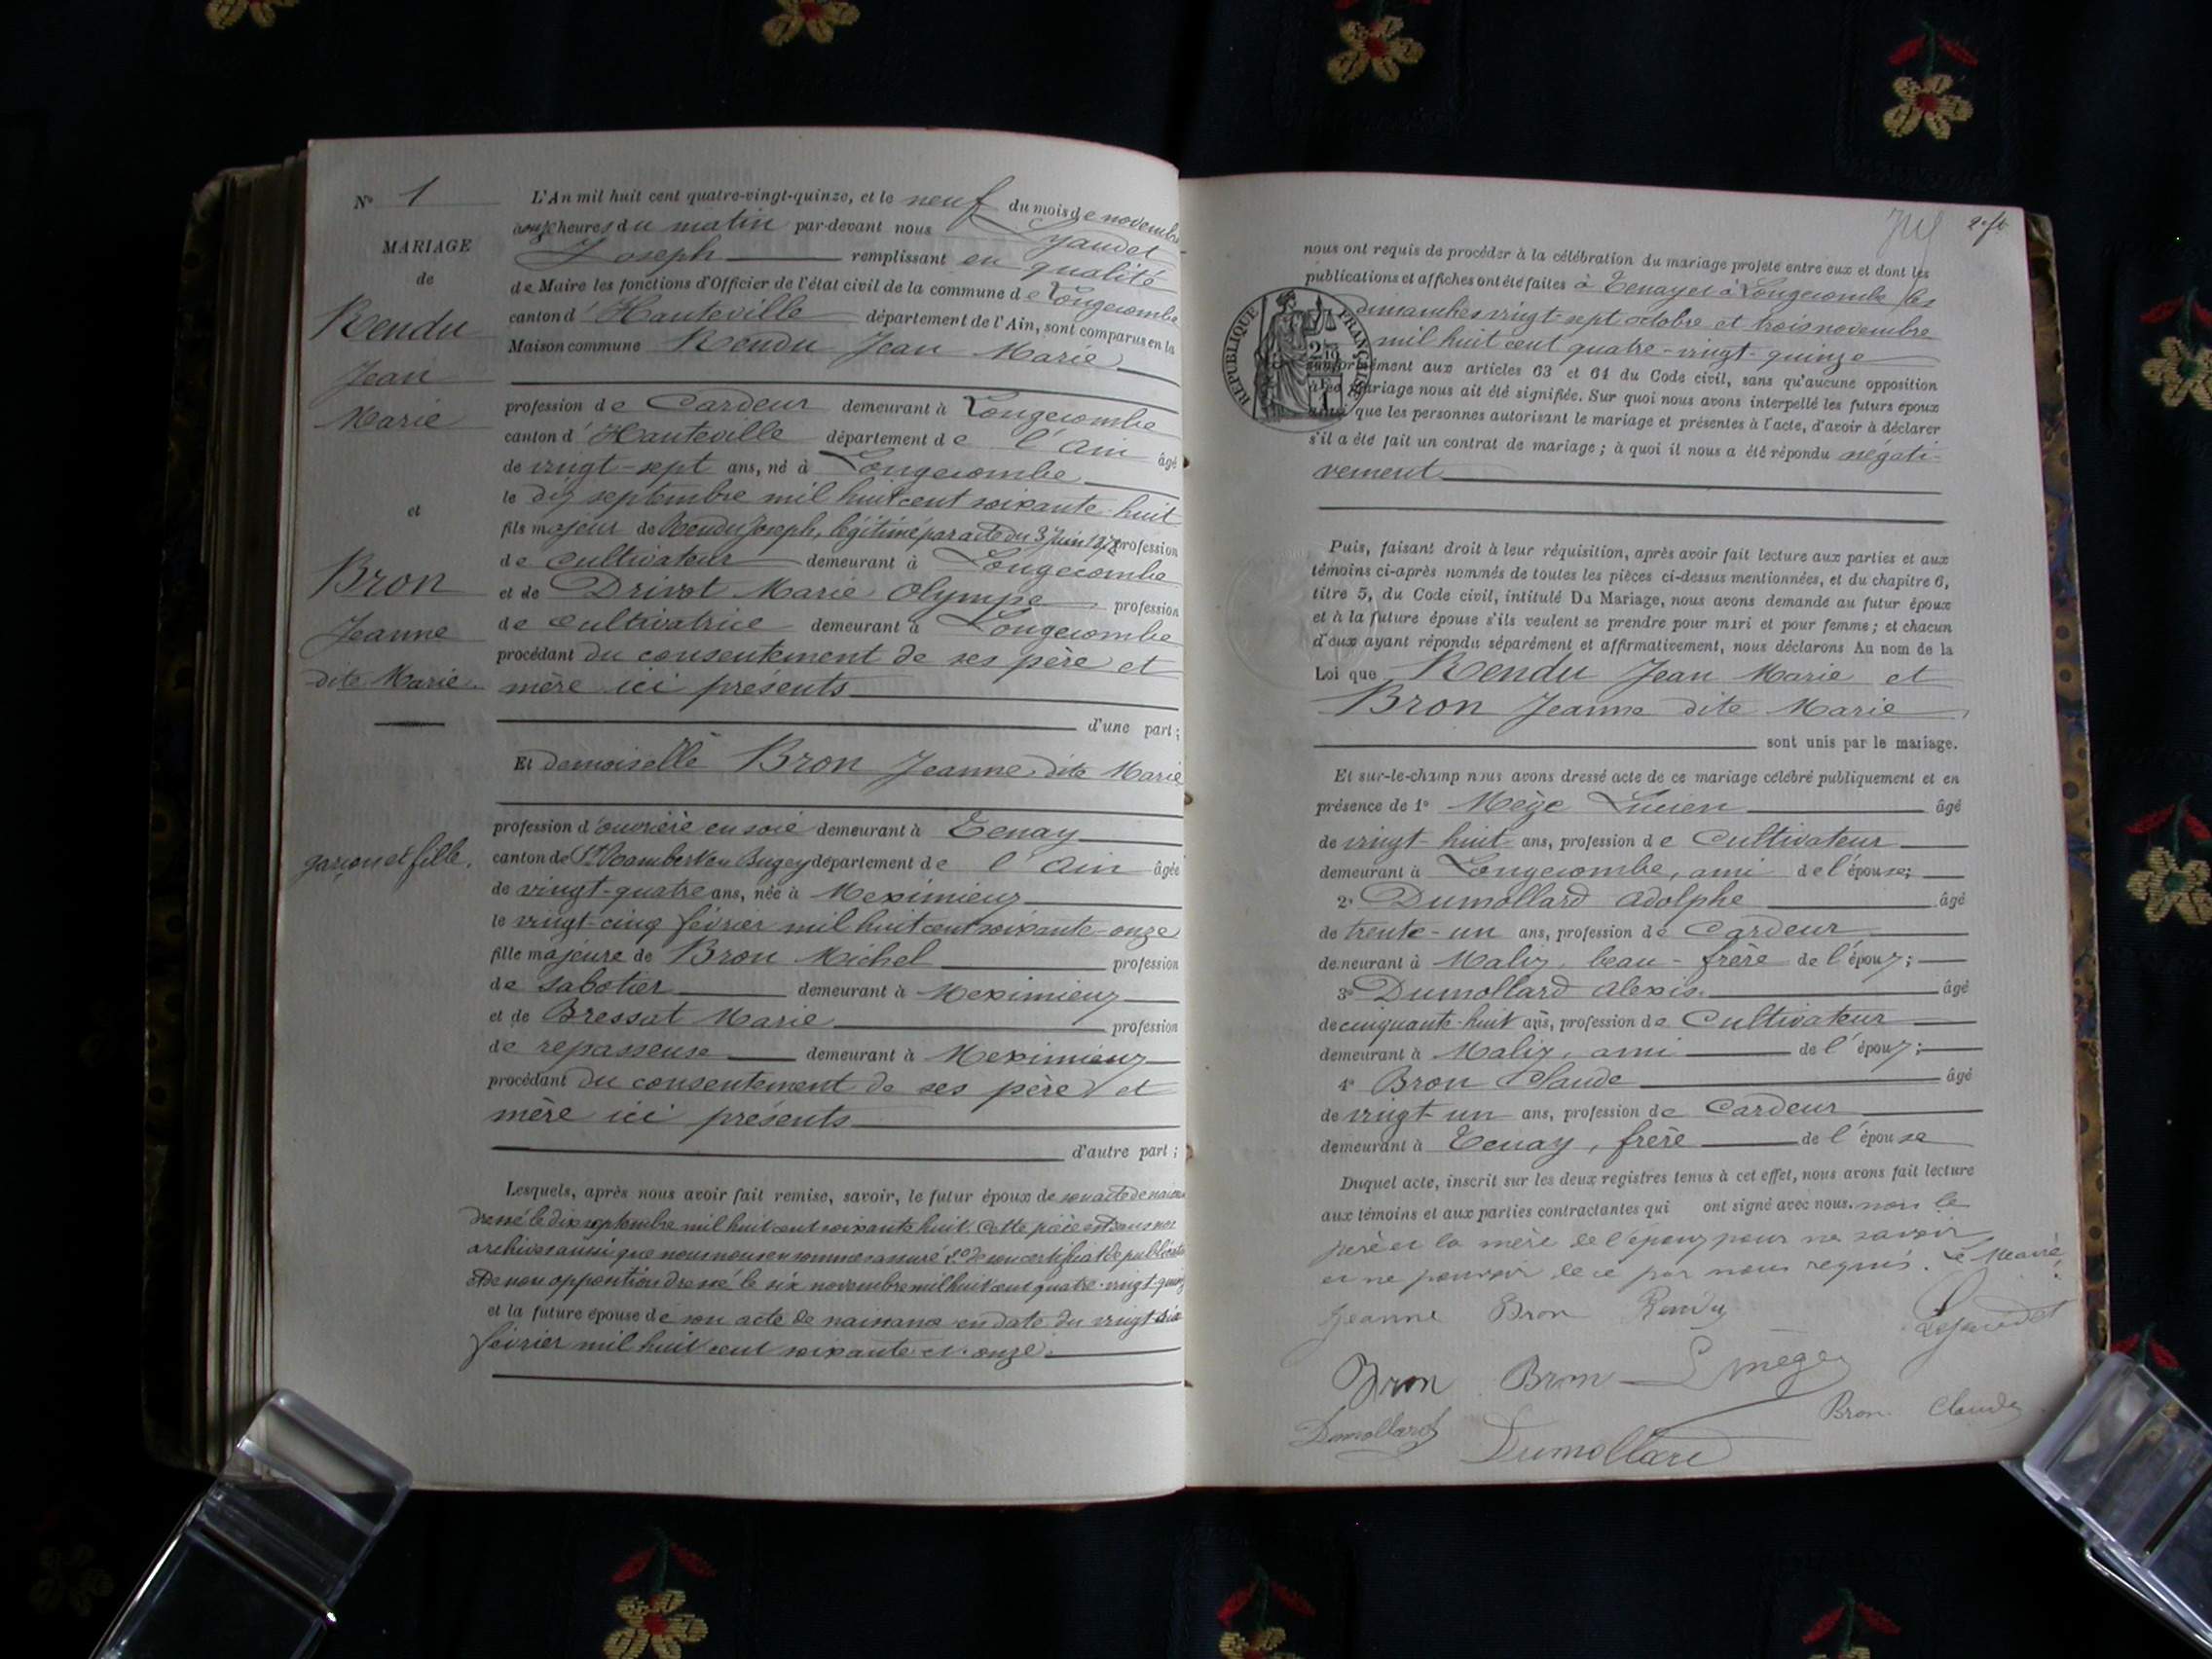 N° 1
MARIAGE
de
Rendu
Jean
Marie
et
Bron
Jeanne
dite Marie.
garçon et fille.
L'An mil huit cent quatre-vingt-quinze, et le neuf du mois de novembre
à onze heures du matin par-devant nous Lyaudet
Joseph remplissant en qualité
de Maire les fonctions d'Officier de l'état civil de la commune de Longecombe
canton d'Hauteville département de l'Ain, sont comparus en la
Maison commune Rendu Jean Marie
profession de Cardeur demeurant à Longecombe
canton d'Hauteville département de l'Ain âgé
de vingt-sept ans, né à Longecombe
le dix septembre mil huit cent soixante-huit
fils majeur de Rendu Joseph, légitimé par acte du 3 Juin profession
de cultivateur demeurant à Longecombe
et de Drivot Marie Olympe profession
de Cultivatrice demeurant à Longecombe
procédant du consentement de ses père et
mère ici présents
d'une part;
Et demoiselle Bron Jeanne dite Marie
profession d'ouvrière en soie demeurant à Tenay
canton de St Rambert en Bugey département de l'Ain âgée
de vingt-quatre ans, née à Meximieux
le vingt-cinq février mil huit cent soixante-onze
fille majeure de Bron Michel profession
de sabotier demeurant à Meximieux
et de Bressat Marie profession
de repasseuse demeurant à Meximieux
procédant du consentement de ses père et
mère ici présents
d'autre part;
Lesquels, après nous avoir fait remise, savoir, le futur époux de son acte de
dressé le dix septembre mil huit cent soixante huit. Cette pièce est dans nos
archives ainsi que nous nous en sommes assuré 2° de son certificat de
et de non opposition dressé le six novembre mil huit cent quatre-vingt-quinze
et la future épouse de son acte de naissance en date du vingt-six
février mil huit cent soixante et onze.
nous ont requis de procéder à la célébration du mariage projeté entre eux et dont les
publications et affiches ont été faites à Tenay et à Longecombe les
dimanches vingt-sept octobre et trois novembre
mil huit cent quatre-vingt-quinze
RÉPUBLIQUE FRANÇAISE
conformément aux articles 63 et 64 du Code civil, sans qu'aucune opposition
mariage nous ait été signifiée. Sur quoi nous avons interpellé les futurs époux
ainsi que les personnes autorisant le mariage et présentes à l'acte, d'avoir à déclarer
s'il a été fait un contrat de mariage; à quoi il nous a été répondu négati-
vement
Puis, faisant droit à leur réquisition, après avoir fait lecture aux parties et aux
témoins ci-après nommés de toutes les pièces ci-dessus mentionnées, et du chapitre 6,
titre 5, du Code civil, intitulé Du Mariage, nous avons demandé au futur époux
et à la future épouse s'ils veulent se prendre pour mari et pour femme; et chacun
d'eux ayant répondu séparément et affirmativement, nous déclarons Au nom de la
Loi que Rendu Jean Marie et
Bron Jeanne dite Marie
sont unis par le mariage.
Et sur-le-champ nous avons dressé acte de ce mariage célébré publiquement et en
présence de 1° Mège Lucien âgé
de vingt-huit ans, profession de Cultivateur
demeurant à Longecombe, ami de l'épouse;
2° Dumollard Adolphe âgé
de trente-un ans, profession de Cardeur
demeurant à Malix, beau-frère de l'époux;
3° Dumollard Alexis âgé
de cinquante-huit ans, profession de Cultivateur
demeurant à Malix, ami de l'époux;
4° Bron Claude âgé
de vingt-un ans, profession de Cardeur
demeurant à Tenay, frère de l'épouse
Duquel acte, inscrit sur les deux registres tenus à cet effet, nous avons fait lecture
aux témoins et aux parties contractantes qui ont signé avec nous. non le
père et la mère de l'époux pour ne savoir
et ne pouvoir de ce par nous requis. Le Maire,
Jeanne Bron Rendu
Bron Bron L Mège
Dumollard Dumollard Bron Claude